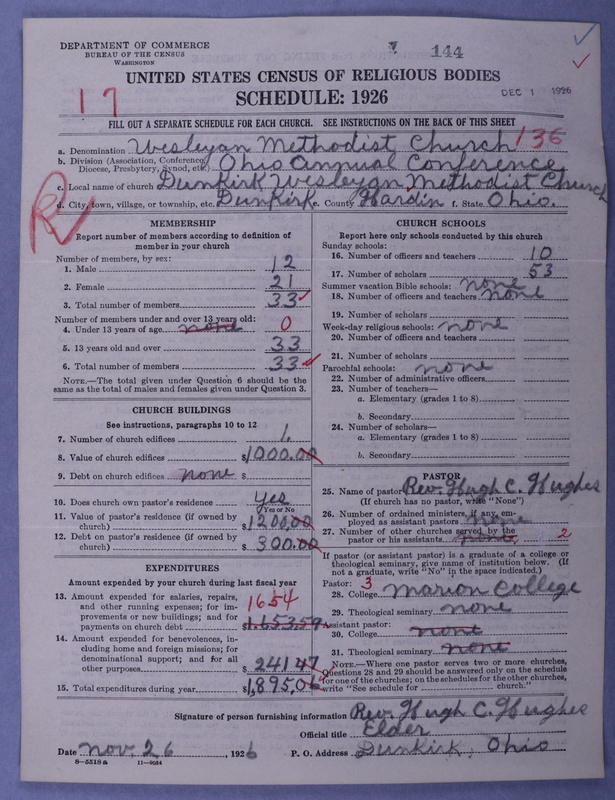 DEPARTMENT OF COMMERCE
BUREAU OF THE CENSUS
WASHINGTON
144
UNITED STATES CENSUS OF RELIGIOUS BODIES
SCHEDULE: 1926
DEC 1 1926
17
FILL OUT A SEPARATE SCHEDULE FOR EACH CHURCH. SEE INSTRUCTIONS ON THE BACK OF THIS SHEET
a. Denomination Wesleyan Methodist Church 136
b. Division (Association, Conference, Diocese, Presbytery, Synod, etc.) Ohio Annual Conference
c. Local name of church Dunkirk Wesleyan Methodist Church
d. City, town, village, or township, etc. Dunkirk e. County Hardin f. State Ohio.
R
MEMBERSHIP
Report number of members according to definition of
member in your church
Number of members, by sex:
1. Male 12
2. Female 21
3. Total number of members 33
Number of members under and over 13 years old:
4. Under 13 years of age none 0
5. 13 years old and over 33
6. Total number of members 33
NOTE.—The total given under Question 6 should be
same as the total of males and females given under Question 3.
CHURCH BUILDINGS
See instructions, paragraphs 10 to 12
7. Number of church edifices 1.
8. Value of church edifices $1000.00
9. Debt on church edifices none $
10. Does church own pastor's residence yes
Yes or No
11. Value of pastor's residence (if owned by
church) $1200.00
12. Debt on pastor's residence (if owned by
church) $300.00
EXPENDITURES
Amount expended by your church during last fiscal year
13. Amount expended for salaries, repairs,
and other running expenses; for im-
provements or new buildings; and for
payments on church debt $1,653.59
1654
14. Amount expended for benevolences, in-
cluding home and foreign missions; for
denominational support; and for all
other purposes $241.47
15. Total expenditures during year $1,895.06
CHURCH SCHOOLS
Report here only schools conducted by this church
Sunday schools:
16. Number of officers and teachers 10
17. Number of scholars 53
Summer vacation Bible schools: none
18. Number of officers and teachers none
19. Number of scholars
Week-day religious schools: none
20. Number of officers and teachers
21. Number of scholars
Parochial schools: none
22. Number of administrative officers
23. Number of teachers—
a. Elementary (grades 1 to 8)
b. Secondary
24. Number of scholars—
a. Elementary (grades 1 to 8)
b. Secondary
PASTOR
25. Name of pastor Rev. Hugh C. Hughes
(If church has no pastor, write "None")
26. Number of ordained ministers, if any, em-
ployed as assistant pastors none
27. Number of other churches served by the
pastor or his assistants none 2
If pastor (or assistant pastor) is a graduate of a college or
theological seminary, give name of institution below. (If
not a graduate, write "No" in the space indicated.)
Pastor: 3
28. College Marion College
29. Theological seminary none
Assistant pastor:
30. College none
31. Theological seminary none
NOTE.—Where one pastor serves two or more churches,
Questions 28 and 29 should be answered only on the schedule
for one of the churches; on the schedules for the other churches,
write "See schedule for church."
Signature of person furnishing information Rev. Hugh C. Hughes
Official title Elder
Date Nov. 26, 1926 P. O. Address Dunkirk, Ohio
8—5518a 11—9034